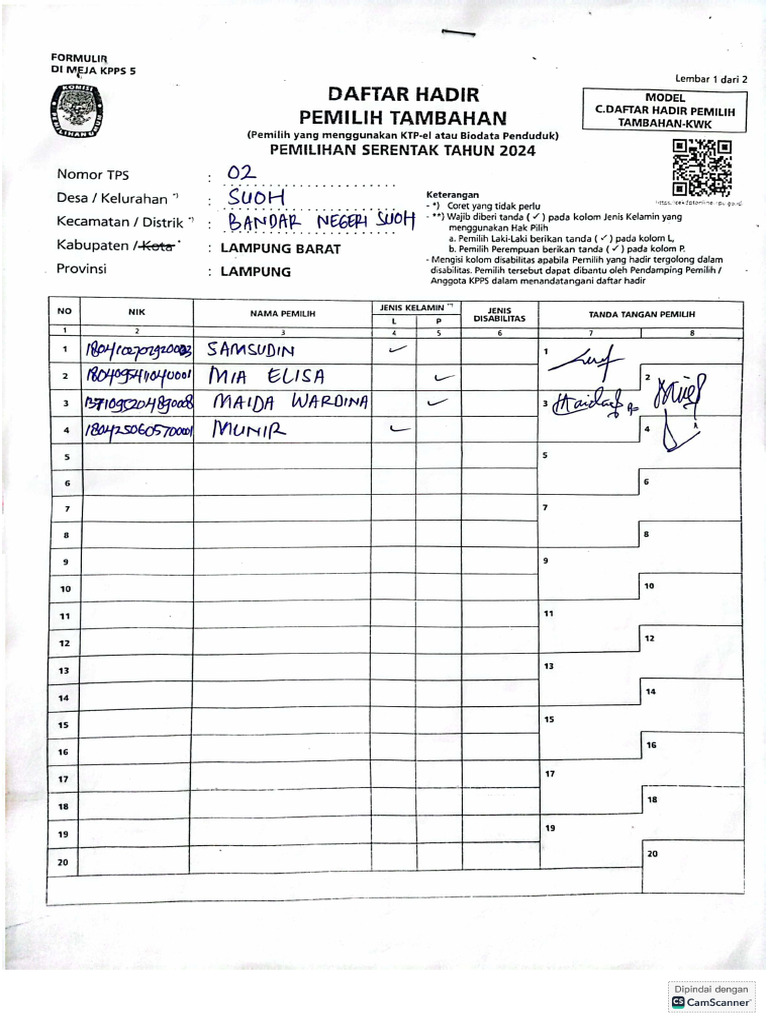 FORMULIR
DI MEJA KPPS 5
Lembar 1 dari 2
KOMISI
PEMILIHAN UMUM
DAFTAR HADIR
PEMILIH TAMBAHAN
(Pemilih yang menggunakan KTP-el atau Biodata Penduduk)
PEMILIHAN SERENTAK TAHUN 2024
MODEL
C.DAFTAR HADIR PEMILIH
TAMBAHAN-KWK
Nomor TPS : 02
Desa / Kelurahan *) : SUOH
Kecamatan / Distrik *) : BANDAR NEGERI SUOH
Kabupaten / Kota * : LAMPUNG BARAT
Provinsi : LAMPUNG
Keterangan
- *) Coret yang tidak perlu
- **) Wajib diberi tanda ( ✓ ) pada kolom Jenis Kelamin yang
menggunakan Hak Pilih
a. Pemilih Laki-Laki berikan tanda ( ✓ ) pada kolom L,
b. Pemilih Perempuan berikan tanda ( ✓ ) pada kolom P.
- Mengisi kolom disabilitas apabila Pemilih yang hadir tergolong dalam
disabilitas. Pemilih tersebut dapat dibantu oleh Pendamping Pemilih /
Anggota KPPS dalam menandatangani daftar hadir
NO NIK NAMA PEMILIH JENIS KELAMIN **) JENIS DISABILITAS TANDA TANGAN PEMILIH
L P
1 2 3 4 5 6 7 8
1 SAMSUDIN ✓ 1
2 1804095411040001 MIA ELISA ✓ 2
3 1371095204890008 MAIDA WARDINA ✓ 3
4 1804250605700001 MUNIR ✓ 4
5 5
6 6
7 7
8 8
9 9
10 10
11 11
12 12
13 13
14 14
15 15
16 16
17 17
18 18
19 19
20 20
Dipindai dengan
CS CamScanner